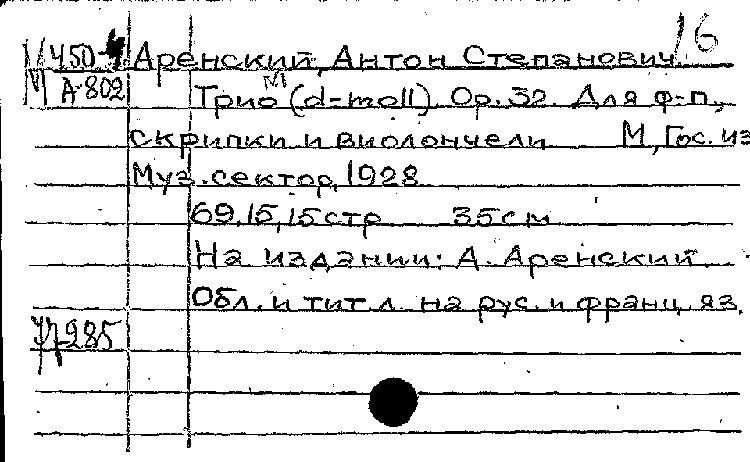 16
М 450-4 Аренский, Антон Степанович
М А-802 Трио (d=moll). Op. 32. Для ф-п.,
скрипки и виолончели М, Гос. из
Муз. сектор, 1928
69, 15, 15 стр 35 см
На издании: А. Аренский
Обл. и тит. л. на рус. и франц. яз.
77-285